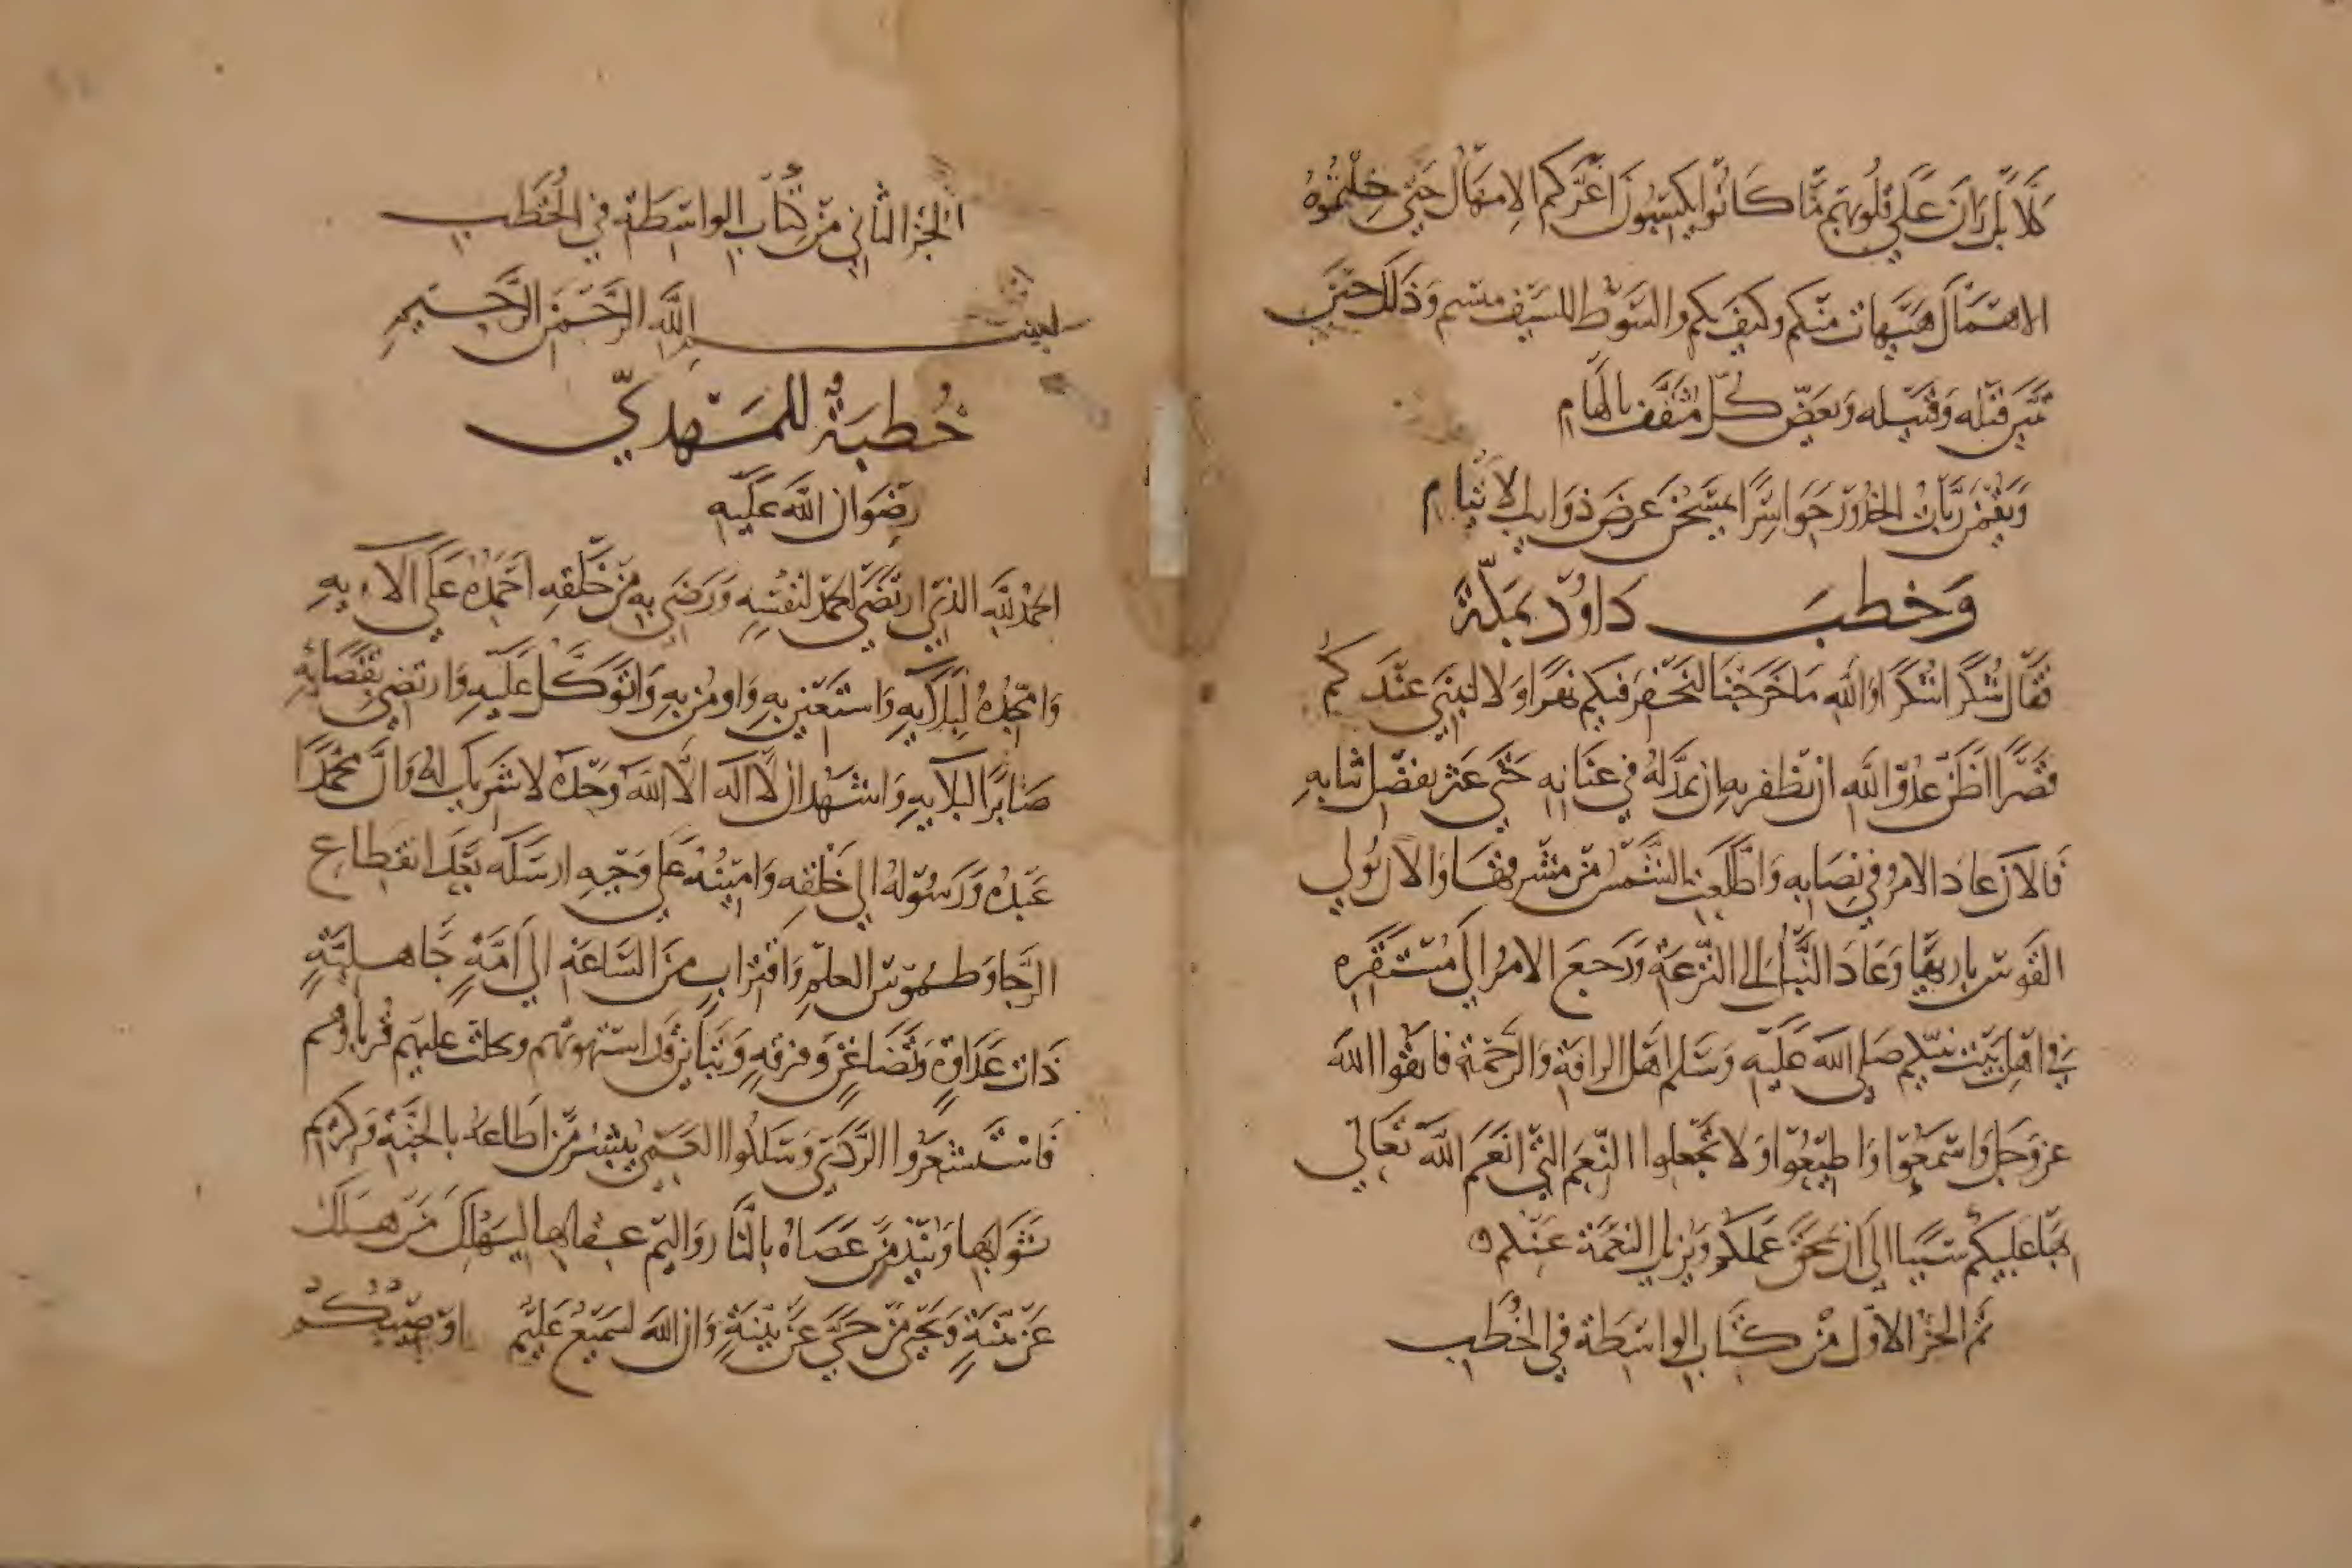 كَلَّا بَلْ رَانَ عَلَى قُلُوبِهِم مَّا كَانُوا يَكْسِبُونَ اغرّكم الامهال حتى خلتموه
الاهمال هيهات منكم وكيف بكم والسوط للسيف مبسم وذلك حين
قتله وقتيله وبعض كل مثقف بالهام
ويقمن ربات الخدور حواسرا يمسحن عرض ذوايب الايتام
وخطب داود بمكة
فقال شكرا شكرا والله ما خرجنا لنحفر فيكم نهرا ولا لنبني عندكم
قصرا اظن عدو الله ان نظفر به ان مد له في عنانه حتى عثر بفضل ثيابه
فالان عاد الامر في نصابه واطلعت الشمس من مشرقها والان تولي
القوس باريها وعاد النبل الى النزعة ورجع الامر الى مستقره
في اهل بيت نبيكم صلى الله عليه وسلم اهل الرافة والرحمة فاتقوا الله
عز وجل واسمعوا واطيعوا ولا تجعلوا النعم التي انعم الله تعالى
بها عليكم سببا الى ان عملكم ويزيل النعمة عنكم
تم الجزء الاول من كتاب الواسطة في الخطب
الجزء الثاني من كتاب الواسطة في الخطب
بسم الله الرحمن الرحيم
خطبة للمهدي
رضوان الله عليه
الحمد لله الذي ارتضى الحمد لنفسه ورضي به من خلقه احمده على الآءيه
وامجده لبلايه واستعين به واومن به واتوكل عليه وارتضي بقضايه
صابرا لبلايه واشهد ان لا اله الا الله وحده لا شريك له وان محمدا
عبده ورسوله الى خلقه وامينه على وحيه ارسله بعد انقطاع
الرجا وطموس العلم واقتراب من الساعة الى امة جاهلية
ذات عداوة وتضاغن وفرقة وتباين قد استهوتهم عليهم
فاستشعروا الردى وسلكوا العمى يبشر من اطاعه بالجنة وكريم
ثوابها وينذر من عصاه بالنار واليم عقابها ليهلك من هلك
عن بينة ويحيى من حي عن بينة وان الله لسميع عليم اوصيكم